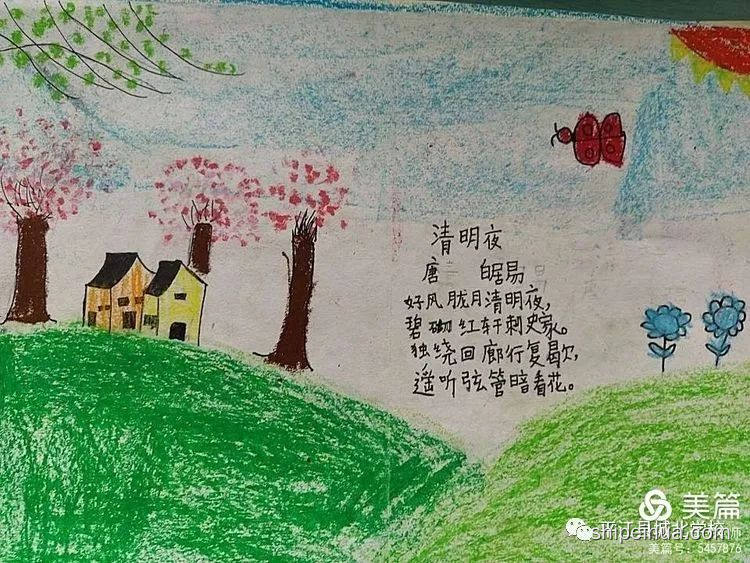 清明夜
唐 白居易
好风胧月清明夜,
碧砌红轩刺史家。
独绕回廊行复歇,
遥听弦管暗看花。
美篇
平江县城北学校
美篇号：5457876